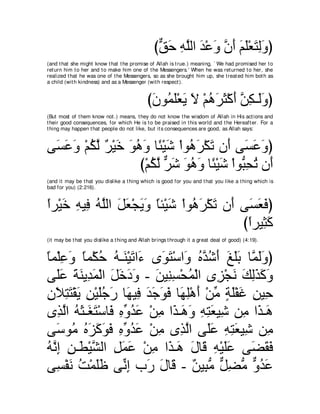 (وَلِتَعْلَمَ أَنَّ وَعْدَ اللَّهِ حَقٌّ)
(and that she might know that the promise of Allah is true.) meaning, `We had promised her to
return him to her and to make him one of the Messengers.' When he was returned to her, she
realized that he was one of the Messengers, so as she brought him up, she treated him both as
a child (with kindness) and as a Messenger (with respect).
(وَلَـكِنَّ أَكْثَرَهُمْ لاَ يَعْلَمُونَ)
(But most of them know not.) means, they do not know the wisdom of Allah in His actions and
their good consequences, for which He is to be praised in this world and the Hereafter. For a
thing may happen that people do not like, but its consequences are good, as Allah says:
(وَعَسَى أَن تَكْرَهُواْ شَيْئًا وَهُوَ خَيْرٌ لَّكُمْ وَعَسَى
أَن تُحِبُّواْ شَيْئًا وَهُوَ شَرٌّ لَّكُمْ)
(and it may be that you dislike a thing which is good for you and that you like a thing which is
bad for you) (2:216).
(فَعَسَى أَن تَكْرَهُواْ شَيْئاً وَيَجْعَلَ اللَّهُ فِيهِ خَيْراً
كَثِيراً)
(it may be that you dislike a thing and Allah brings through it a great deal of good) (4:19).
(وَلَمَّا بَلَغَ أَشُدَّهُ وَاسْتَوَى ءَاتَيْنَـهُ حُكْماً وَعِلْماً
وَكَذَلِكَ نَجْزِى الْمُحْسِنِينَ - وَدَخَلَ الْمَدِينَةَ عَلَى
حِينِ غَفْلَةٍ مِّنْ أَهْلِهَا فَوَجَدَ فِيهَا رَجُلَيْنِ يَقْتَتِلاَنِ
هَـذَا مِن شِيعَتِهِ وَهَـذَا مِنْ عَدُوِّهِ فَاسْتَغَـثَهُ الَّذِى
مِن شِيعَتِهِ عَلَى الَّذِى مِنْ عَدُوِّهِ فَوَكَزَهُ مُوسَى
فَقَضَى عَلَيْهِ قَالَ هَـذَا مِنْ عَمَلِ الشَّيْطَـنِ إِنَّهُ
عَدُوٌّ مُّضِلٌّ مُّبِينٌ - قَالَ رَبِّ إِنِّى ظَلَمْتُ نَفْسِى